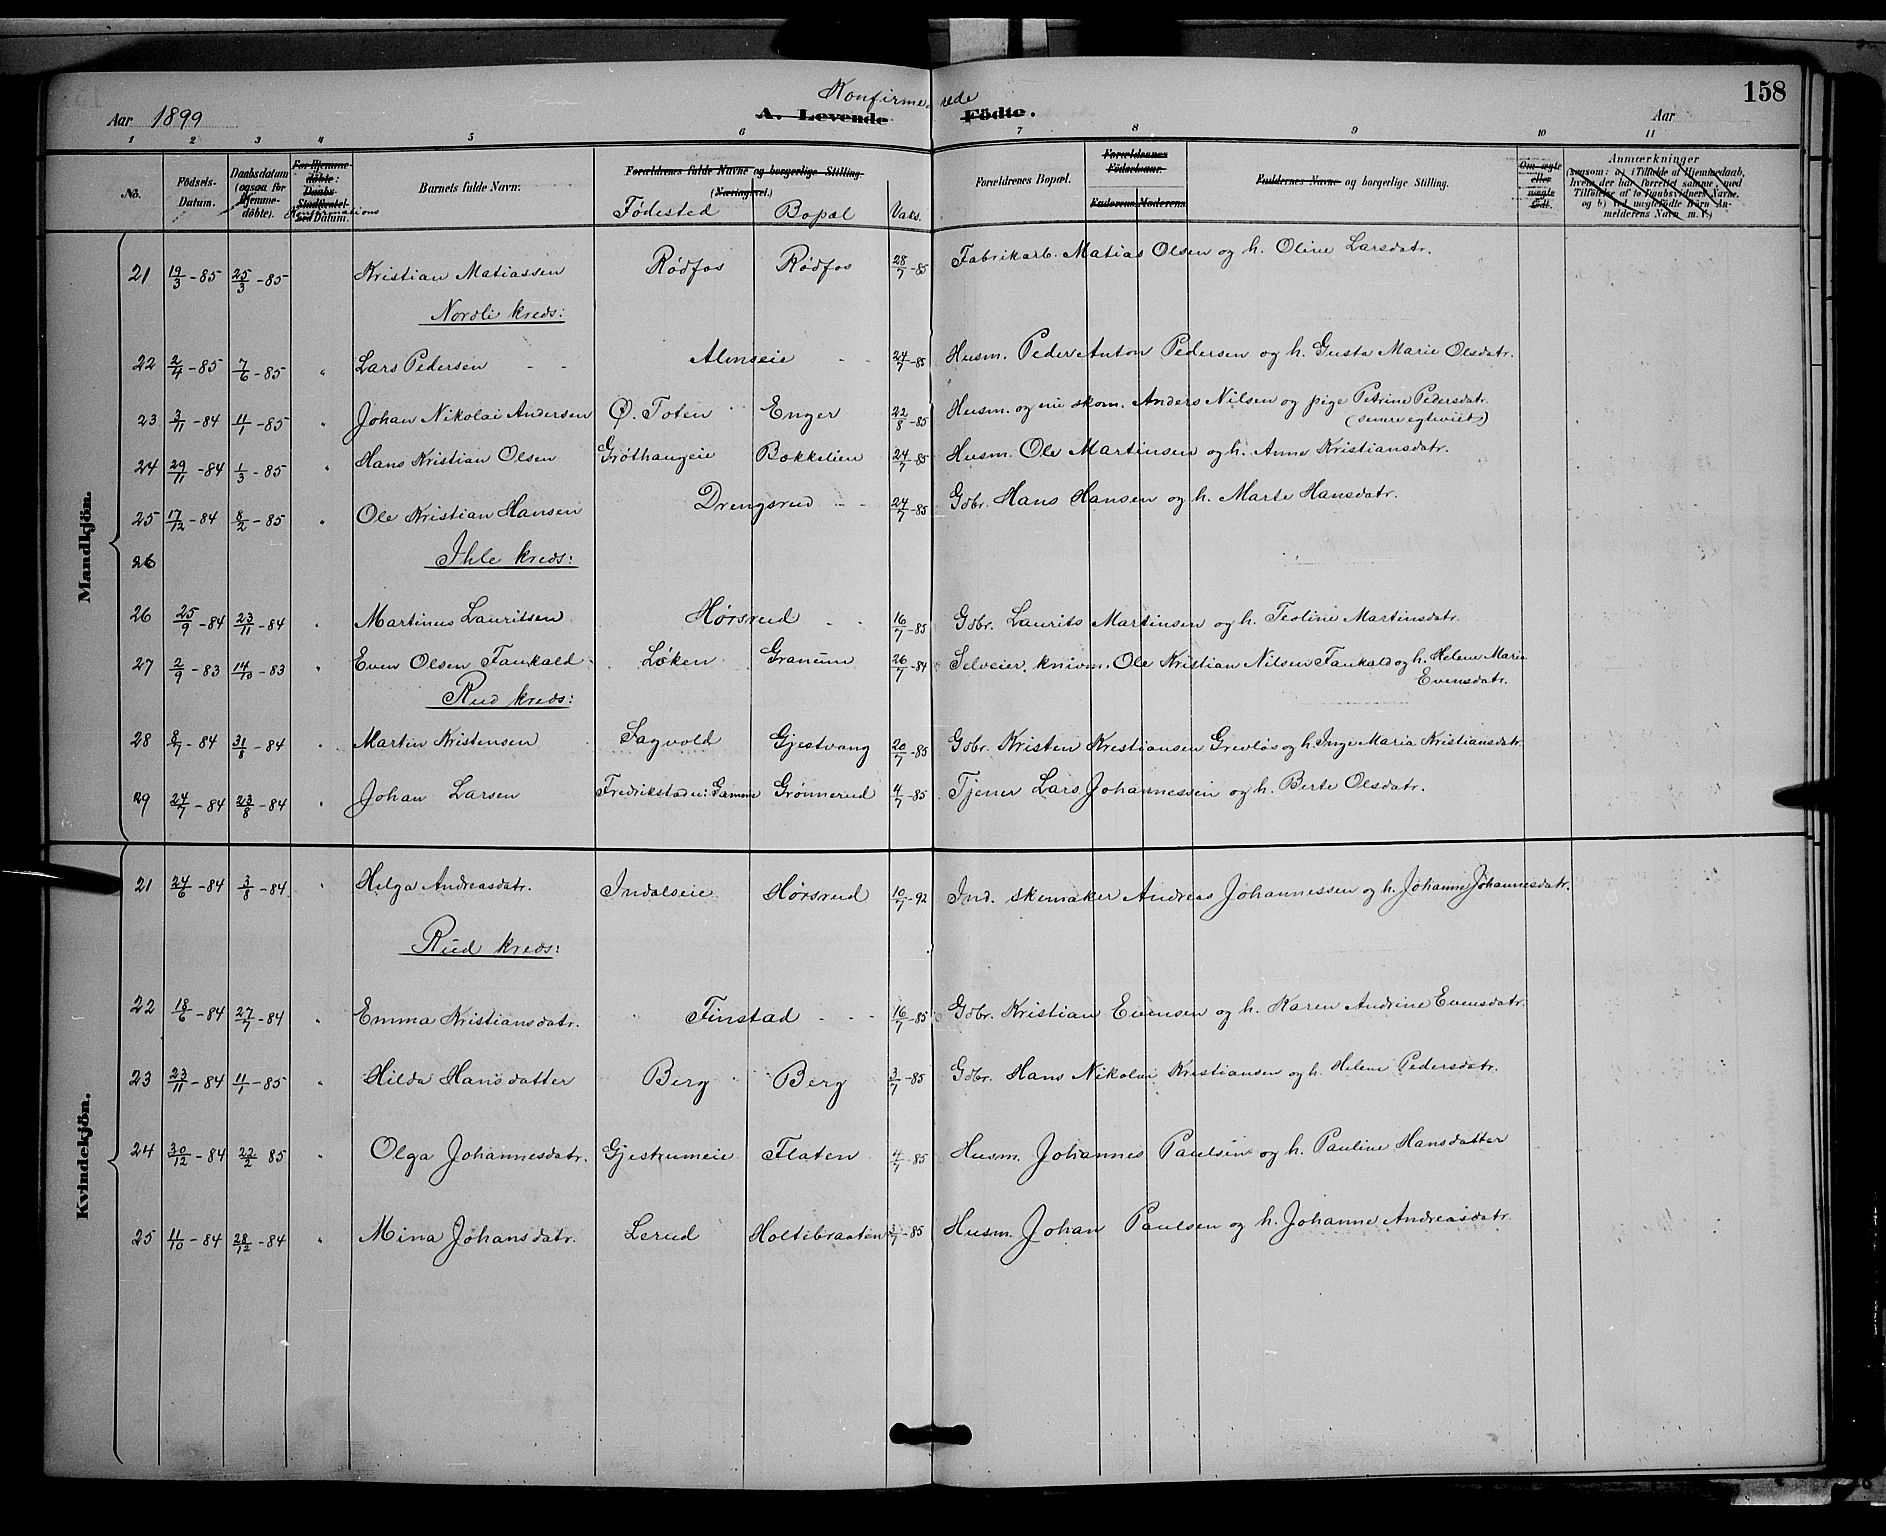 Konfirmerede
158
Aar 1899 A. Levende Födte. Aar
1 2 3 4 5 6 7 8 9 10 11
No. Födsels-Datum. Daabsdatum (ogsaa for hjemme-döbte). For Hjemme-döbte: Daabs- Stadfæstelses Datum. Konfirmations Barnets fulde Navn. Forældrenes fulde Navne og borgerlige Stilling. (Næringsvei.) Fødested Bopæl Vaks. Forældrenes Bopæl. Forældrenes Födselsaar. Faderens Moderens Faddernes Navne og borgerlige Stilling. Om ægte eller uægte født. Anmærkninger (saasom: a) i Tilfælde af Hjemmedaab, hvem der har forrettet samme, med Tilföielse af to Daabsvidners Navne, og b) ved uægtefödte Börn Anmelderens Navn m. V.)
Mandkjön.
21 19/3-85 25/3-85 Kristian Matiassen Rødfos Rødfos 28/7-85 Fabrikarb. Matias Olsen og h. Oline Larsdatr.
Nordli kreds:
22 2/4-85 7/6-85 " Lars Pedersen - - Almseie - - 24/7-85 Husm. Peder Anton Pedersen og h. Gusta Marie Olsdatr.
23 3/11-84 11/1-85 " Johan Nikolai Andersen Ø. Toten Enger 22/8-85 Husm. og nu skom. Anders Nilsen og pige Petrine Pedersdatr.
(senere egteviet)
24 29/11-84 1/3-85 " Hans Kristian Olsen Grøthaugeie Bækkelien 24/7-85 Husm. Ole Martinsen og h. Anne Kristiansdatr.
25 17/12-84 8/2-85 " Ole Kristian Hansen Drengsrud - - 24/7-85 Gdbr. Hans Hansen og h. Marte Hansdatr.
26 Ihle kreds:
26 25/9-84 23/11-84 " Martinus Lauritsen Hørsrud - - 16/7-85 Gdbr. Laurits Martinsen og h. Teoline Martinsdatr.
27 2/9-83 14/10-83 " Even Olsen Faukald Løken Granum 26/7-84 Selveier, knivm. Ole Kristian Nilsen Faukald og h. Helene Marie
Evensdatr.
Rud kreds:
28 8/7-84 31/8-84 " Martin Kristensen Fagvold Gjestvang 20/7-85 Gdbr. Kristen Kristiansen Grevløs og h. Inge Maria Kristiansdatr.
29 24/7-84 23/8-84 " Johan Larsen Fredrikstad Grønnerud 4/7-85 Tjener Lars Johannessen og h. Berte Olsdatr.
Kvindekjön.
21 24/6-84 3/8-84 " Helga Andreasdatr. Indalseie Hørsrud 10/7-92 Ind. skomaker Andreas Johannessen og h. Johanne Johannesdatr.
Rud kreds:
22 18/6-84 27/7-84 " Emma Kristiansdatr. Finstad - - - 16/7-85 Gdbr. Kristian Evensen og h. Karen Andrine Evensdatr.
23 23/11-84 11/1-85 " Hilda Hansdatter Berg Berg 3/7-85 Gdbr. Hans Nikolai Kristiansen og h. Helene Pedersdatr.
24 30/12-84 22/2 85 " Olga Johannesdatr. Gjestrumeie Flaten 4/7-85 Husm. Johannes Paulsen og h. Pauline Hansdatter
25 11/10-84 28/12-84 " Mina Johansdatr. Lerud Holtebraaten 3/7-85 Husm. Johan Paulsen og h. Johanne Andreasdatr.